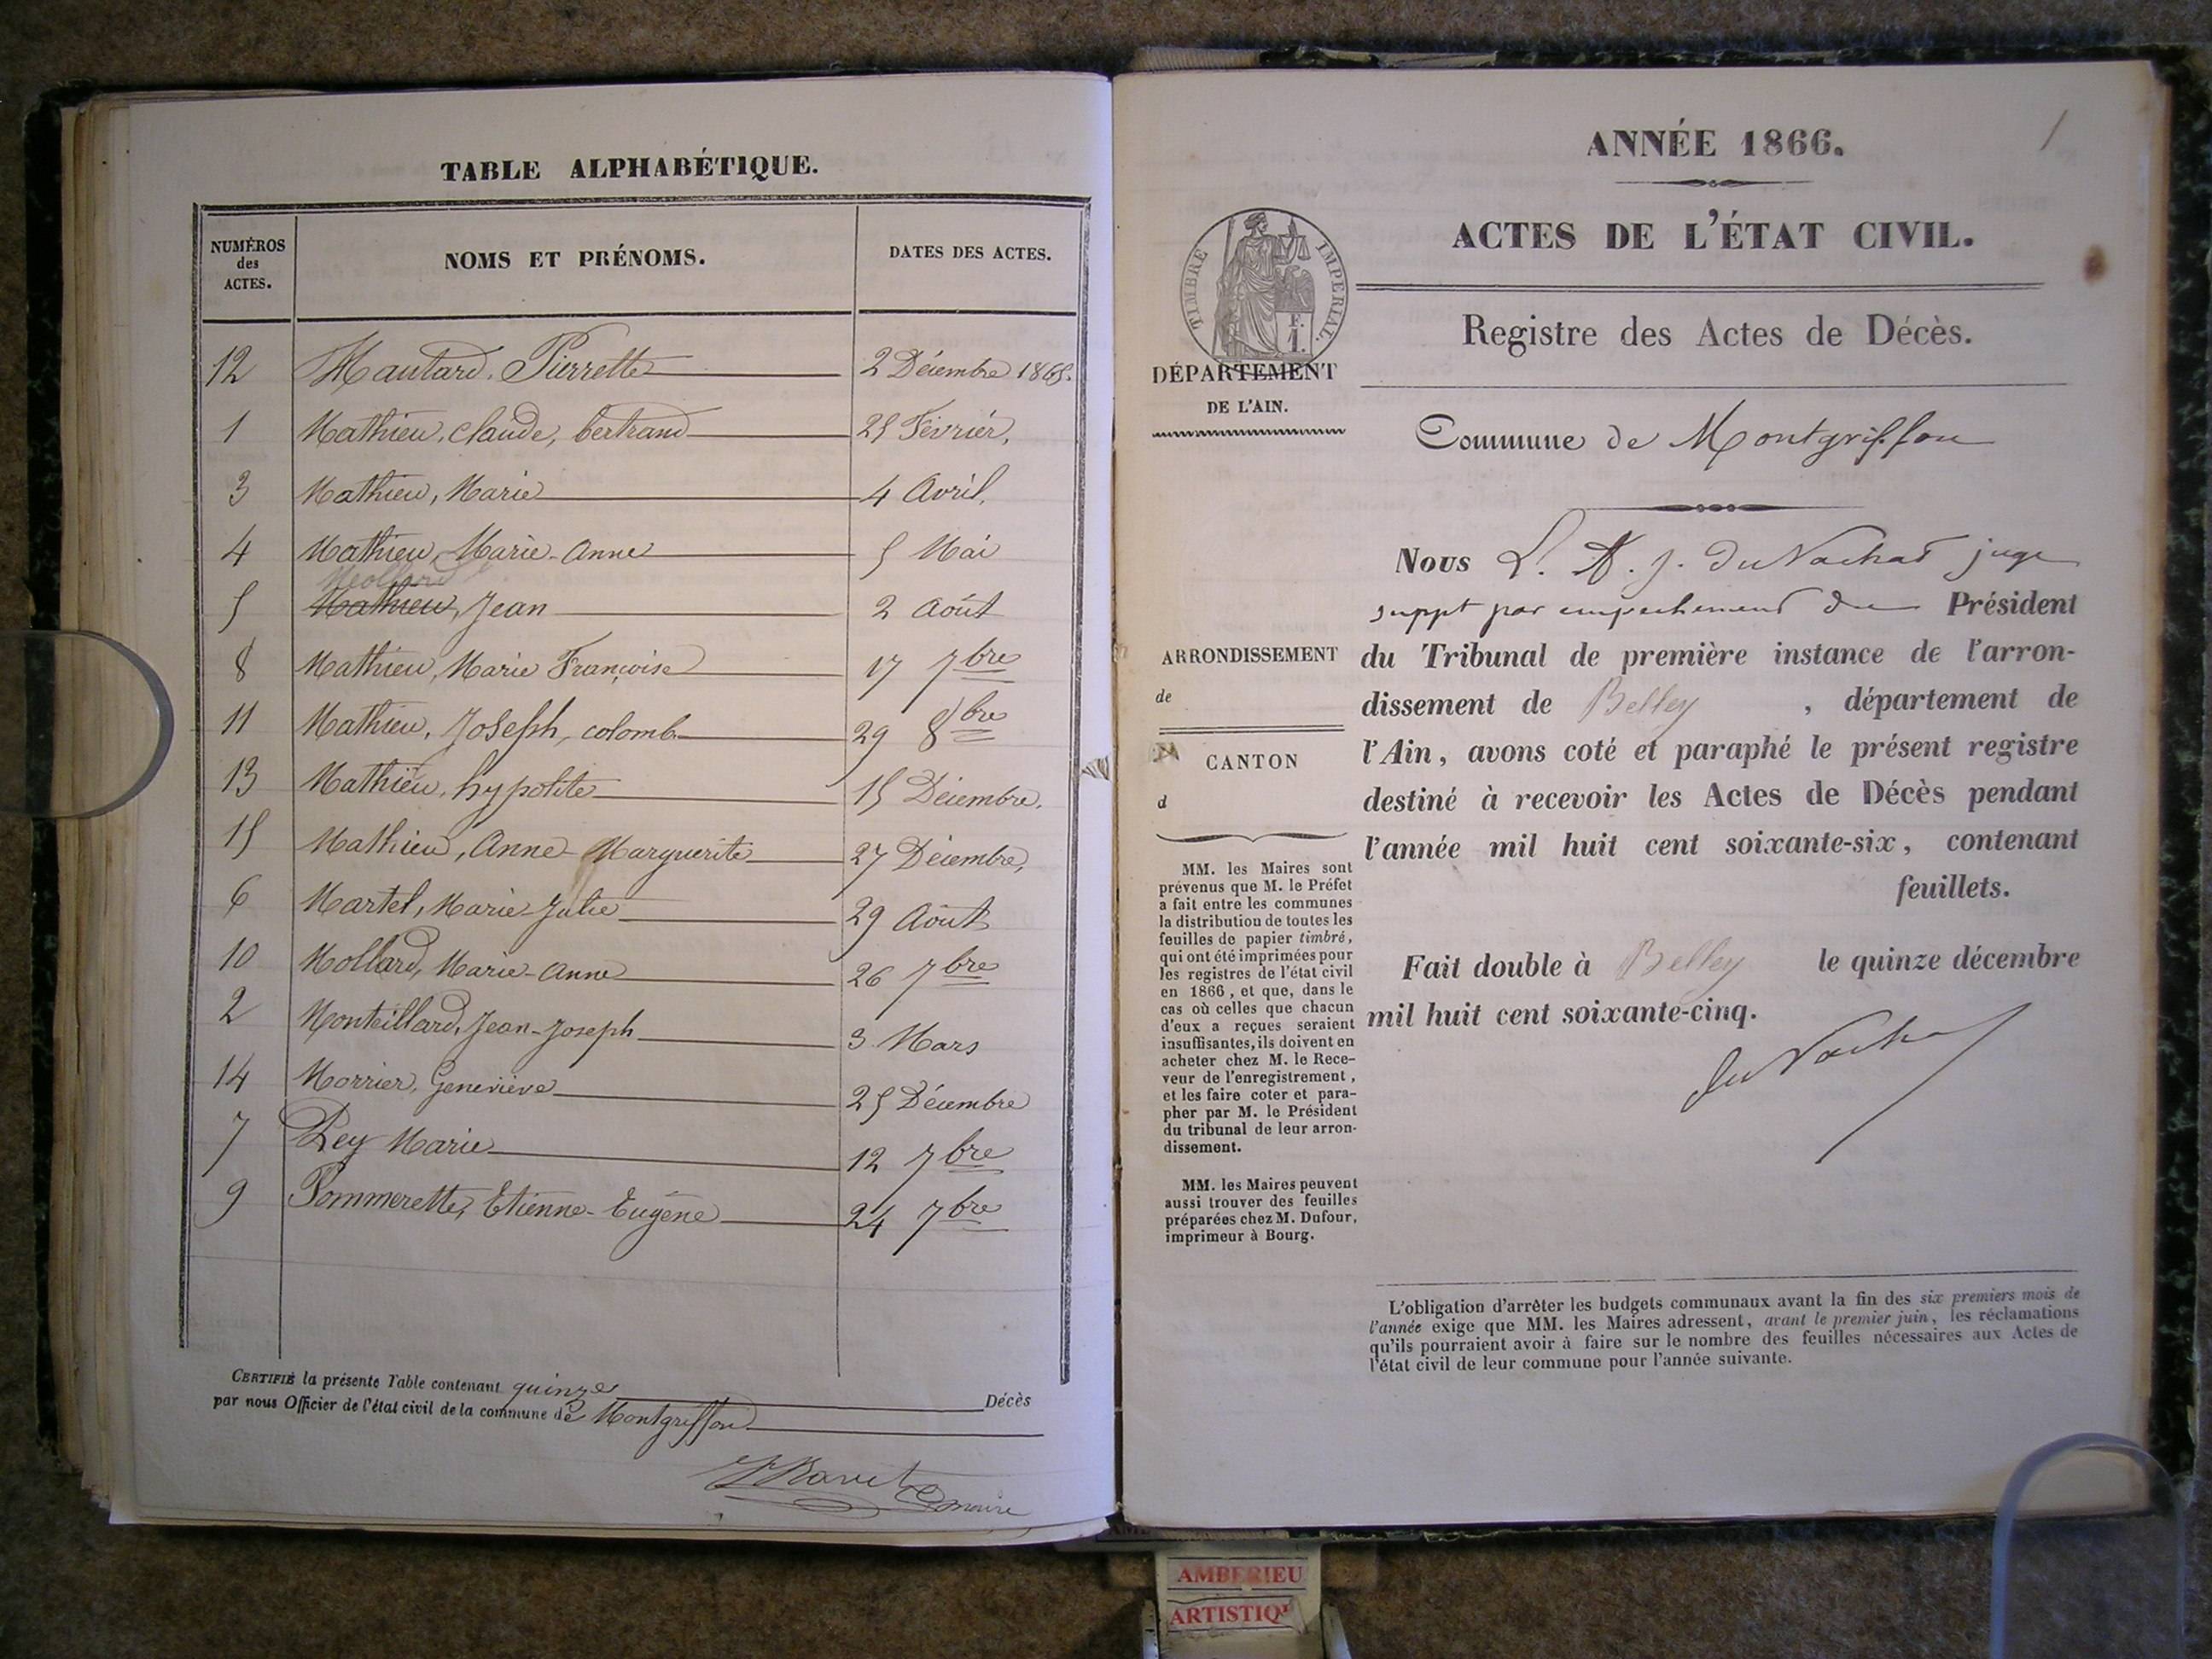 TABLE ALPHABÉTIQUE.
NUMÉROS des ACTES. NOMS ET PRÉNOMS. DATES DES ACTES.
12 Mautard. Pierrette 2 Décembre 1865.
1 Mathieu, claude, bertrand 25 Février,
3 Mathieu, Marie 4 Avril,
4 Mathieu, Marie-Anne 5 Mai
Mollard
5 Mathieu, Jean 2 Août
8 Mathieu, Marie Françoise 17 7bre
11 Mathieu, Joseph, colomb 29 8bre
13 Mathieu, hypolite 15 Décembre.
15 Mathieu, Anne-Marguerite 27 Décembre,
6 Martel, Marie-Julie 29 Août
10 Mollard, Marie-Anne 26 7bre
2 Monteillard, Jean-Joseph 3 Mars
14 Morrier, Geneviève 25 Décembre
7 Pey Marie 12 7bre
9 Pommerette, Etienne-Eugène 24 7bre
CERTIFIÉ la présente Table contenant quinze Décès
par nous Officier de l'état civil de la commune de Montgriffon
Ravet maire
1
ANNÉE 1866.
ACTES DE L'ÉTAT CIVIL.
TIMBRE IMPERIAL.
F.
1.
Registre des Actes de Décès.
DÉPARTEMENT
DE L'AIN.
Commune de Montgriffon
Nous L. A. J. Du Vachat juge
suppt par empechement du Président
du Tribunal de première instance de l'arron-
dissement de Belley , département de
l'Ain, avons coté et paraphé le présent registre
destiné à recevoir les Actes de Décès pendant
l'année mil huit cent soixante-six, contenant
feuillets.
Fait double à Belley le quinze décembre
mil huit cent soixante-cinq.
Du Vachat
ARRONDISSEMENT
de
CANTON
d
MM. les Maires sont
prévenus que M. le Préfet
a fait entre les communes
la distribution de toutes les
feuilles de papier timbré,
qui ont été imprimées pour
les registres de l'état civil
en 1866, et que, dans le
cas où celles que chacun
d'eux a reçues seraient
insuffisantes, ils doivent en
acheter chez M. le Rece-
veur de l'enregistrement,
et les faire coter et para-
pher par M. le Président
du tribunal de leur arron-
dissement.
MM. les Maires peuvent
aussi trouver des feuilles
préparées chez M. Dufour,
imprimeur à Bourg.
L'obligation d'arrêter les budgets communaux avant la fin des six premiers mois de
l'année exige que MM. les Maires adressent, avant le premier juin, les réclamations
qu'ils pourraient avoir à faire sur le nombre des feuilles nécessaires aux Actes de
l'état civil de leur commune pour l'année suivante.
AMBERIEU
ARTISTIQ